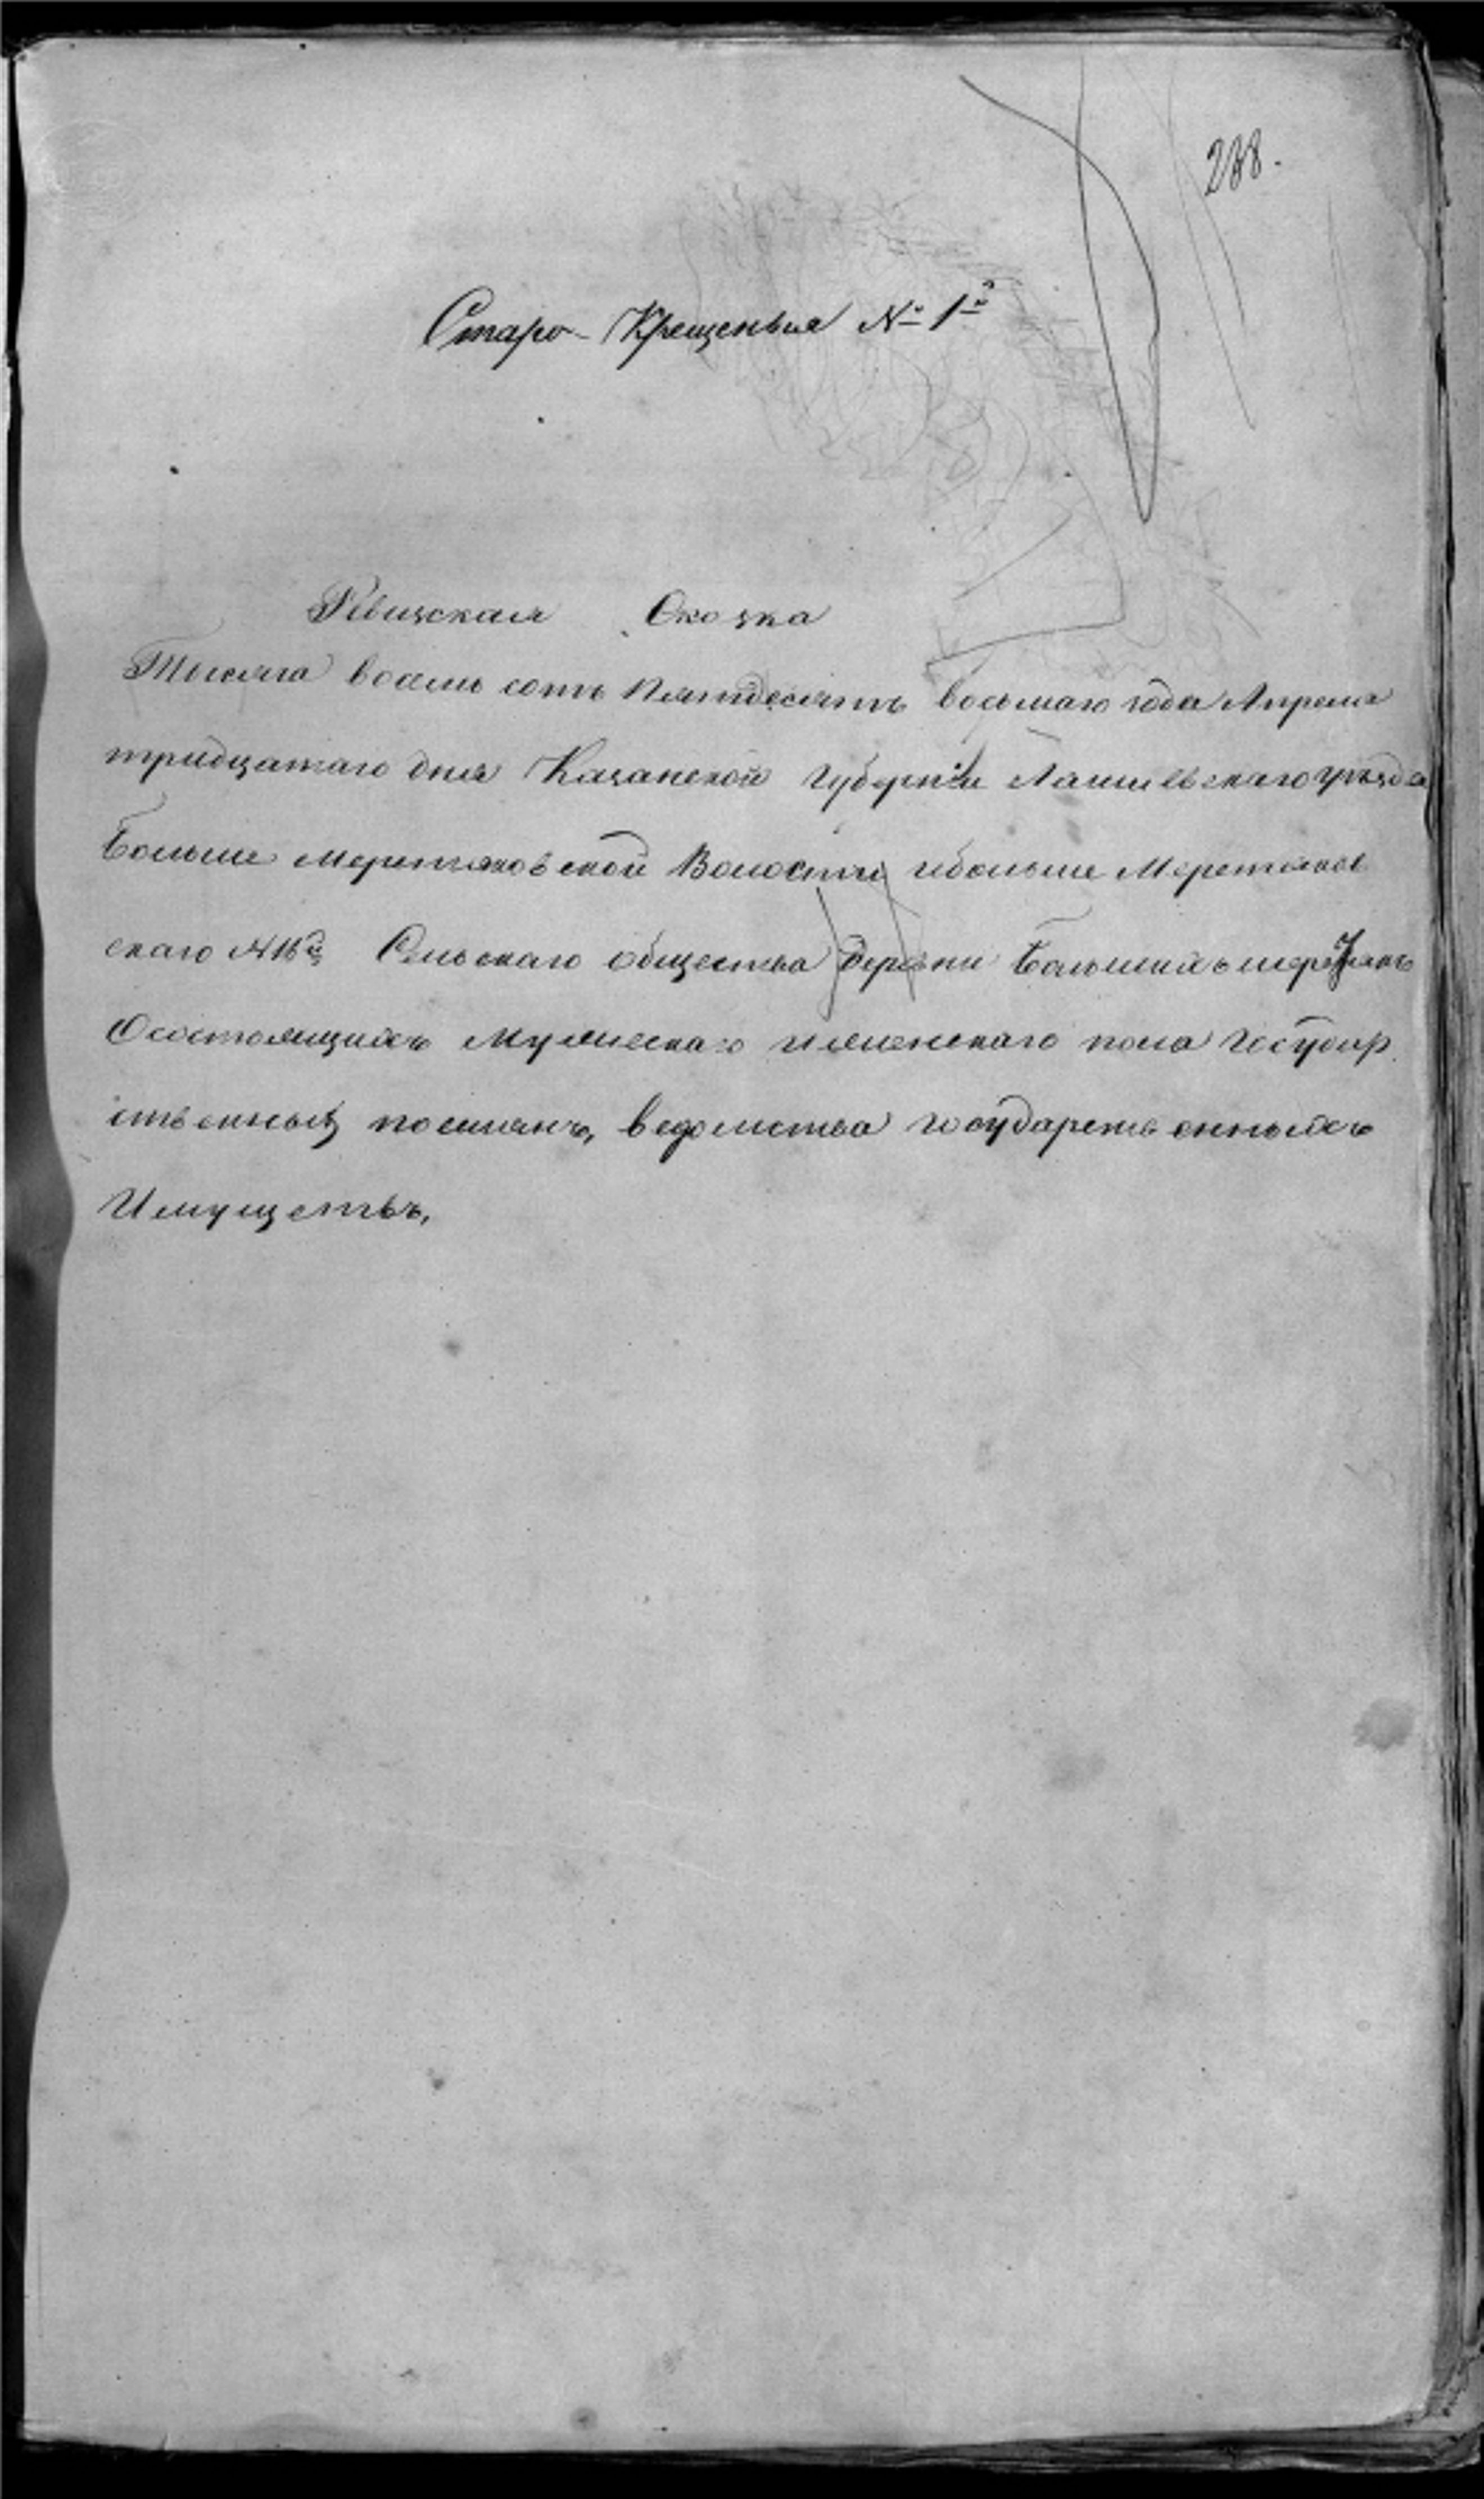 288.
Старо-Крещеные № 1й
Ревизская Скозка
Тысяча восемь сотъ Пятидесятъ восьмаго года Апреля
тридцатаго дня Казанской губерніи Лаишевскаго уѣзда
Больше Меретяковской Волости ибольше Меретяков
скаго Сельскаго общества Деревни Большихъ меретякъ
Осостоящихъ Мужескаго иженскаго пола Государ
ственныхъ поселянъ, ведомства государственныхъ
Имуществъ,